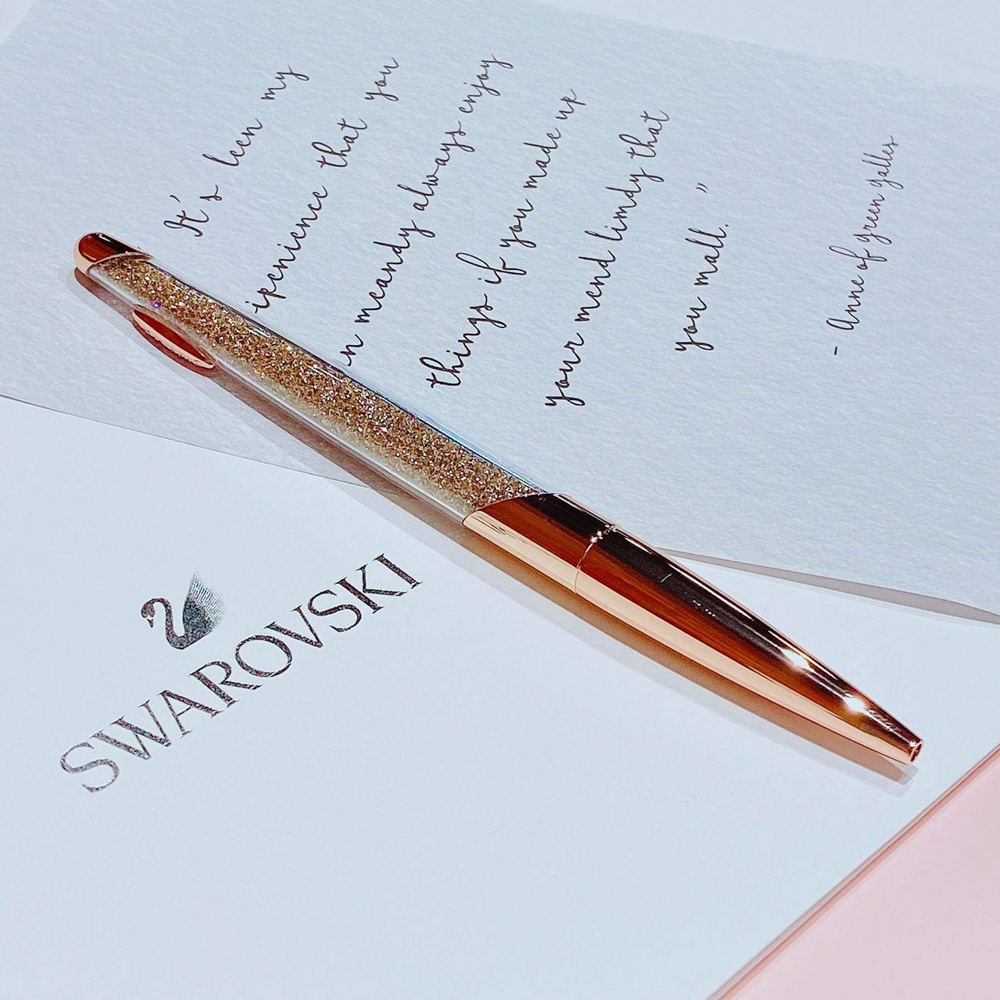 It's leen my
ipenience that you
n meandy always enjoy
things if you made up
your mend limdy that
you mall."
- Anne of green galles
SWAROVSKI